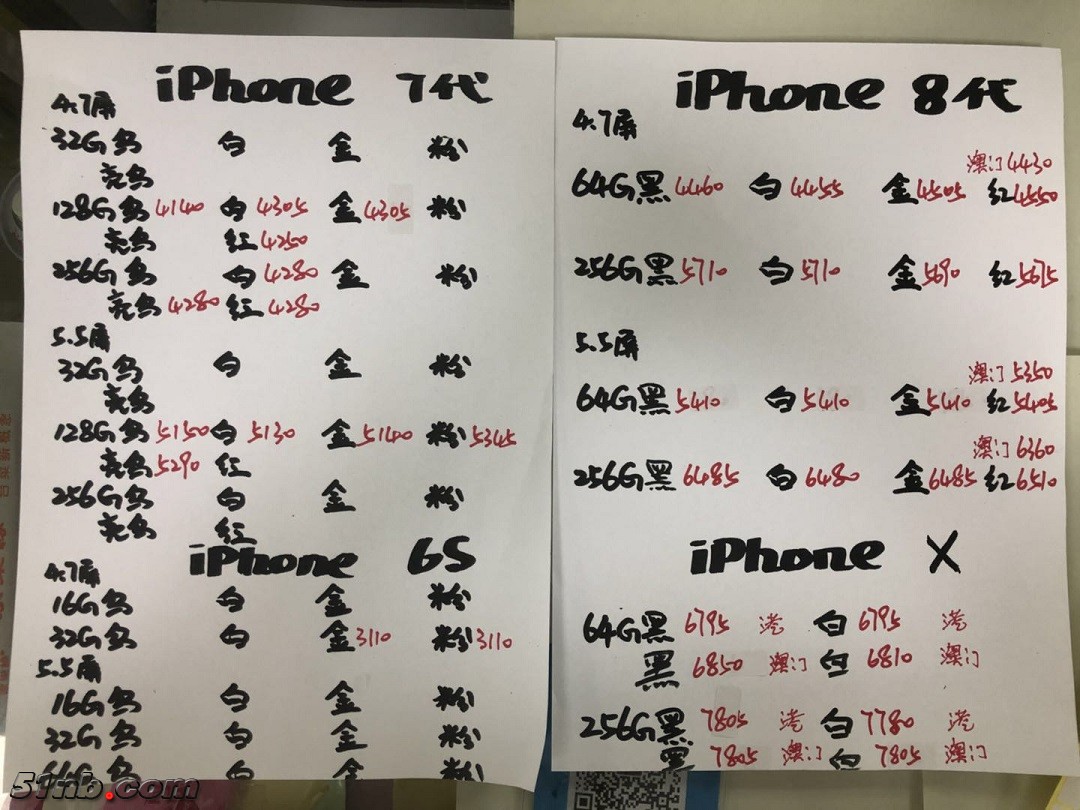 iPhone 7代
4.7屏
32G鸟 白 金 粉
亮鸟
128G鸟4140 白4305 金4305 粉
亮鸟 红4250
256G鸟 白4280 金 粉
亮鸟4280 红4280
5.5屏
32G鸟 白 金 粉
亮鸟
128G鸟5150 白5130 金5140 粉5345
亮鸟5290 红
256G鸟 白 金 粉
亮鸟 红
iPhone 6S
4.7屏
16G鸟 白 金 粉
32G鸟 白 金3110 粉3110
5.5屏
16G鸟 白 金 粉
32G鸟 白 金 粉
鸟 白 金 粉
iPhone 8代
4.7屏
澳门4430
64G黑4460 白4455 金4505 红4550
256G黑5710 白5710 金5690 红5675
5.5屏
澳门5350
64G黑5410 白5410 金5410 红5405
澳门6360
256G黑6485 白6480 金6485 红6510
iPhone X
64G黑 6795 港 白6795 港
黑 6850 澳门 白 6810 澳门
256G黑 7805 港 白7780 港
黑 7805 澳门 白 7805 澳门
51nb.com